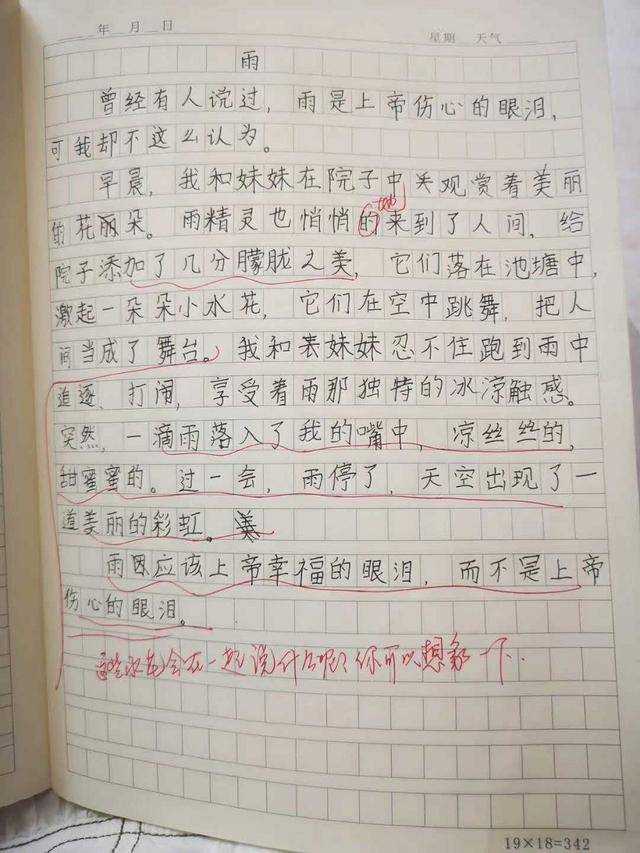 年 月 日 星期 天气
雨
曾经有人说过，雨是上帝伤心的眼泪，
可我却不这么认为。
早晨，我和妹妹在院子中观赏着美丽
的花丽朵。雨精灵也悄悄的来到了人间，给
院子添加了几分朦胧之美，它们落在池塘中，
激起一朵朵小水花，它们在空中跳舞，把人
间当成了舞台。我和表妹妹忍不住跑到雨中
追逐、打闹，享受着雨那独特的冰凉触感。
突然，一滴雨落入了我的嘴中，凉丝丝的，
甜蜜蜜的。过一会，雨停了，天空出现了一
道美丽的彩虹。
雨应该上帝幸福的眼泪，而不是上帝
伤心的眼泪。
这些水花会在一起说什么呢？你可以想象一下.
19×18=342